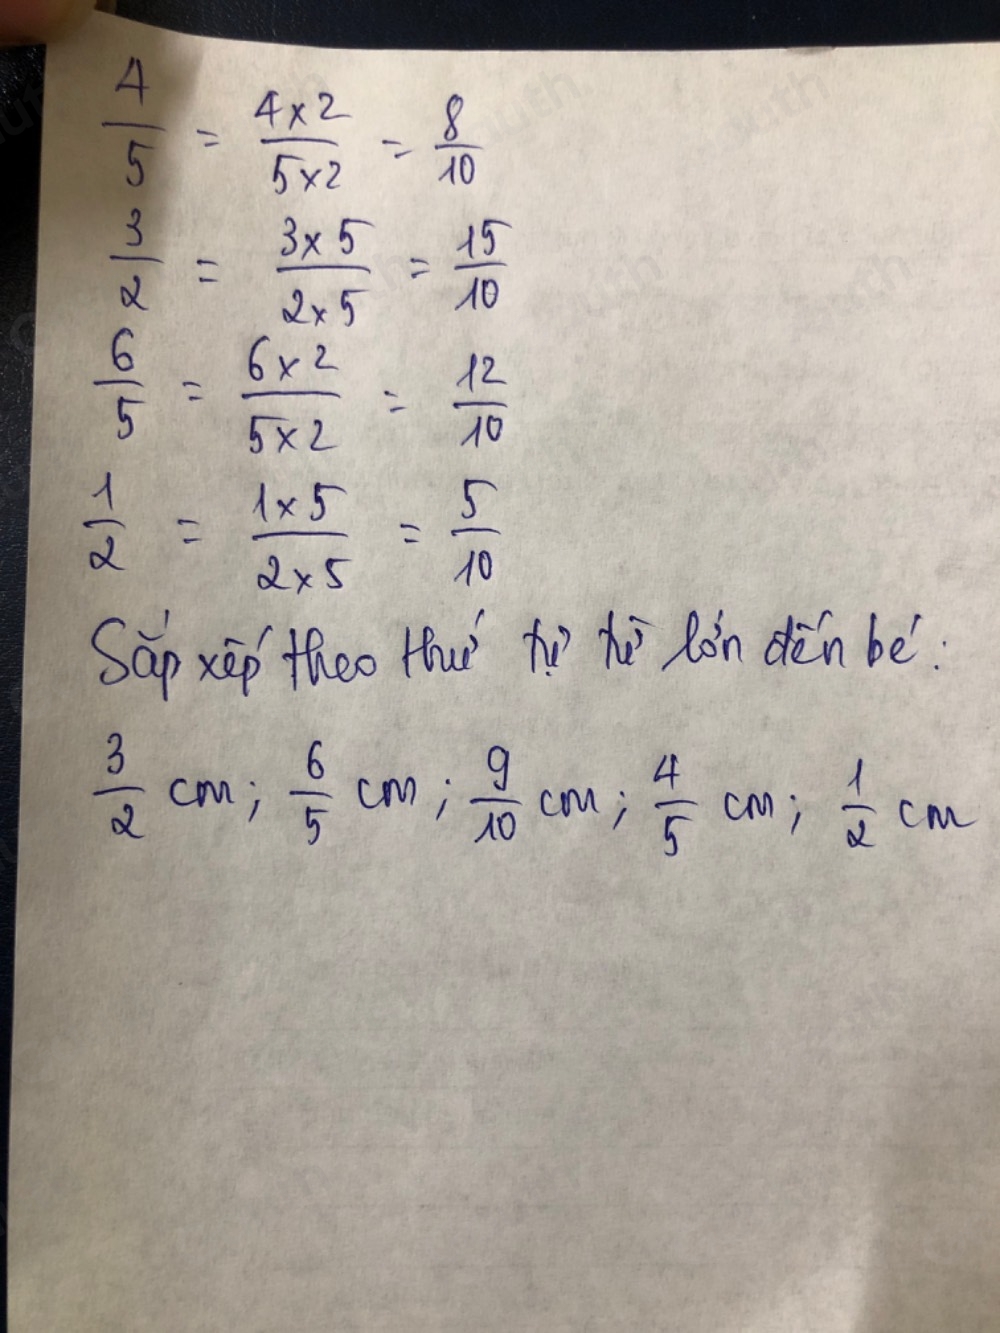 4/5 = 4x2/5x2 = 8/10
3/2 = 3x5/2x5 = 15/10
6/5 = 6x2/5x2 = 12/10
1/2 = 1x5/2x5 = 5/10
Sắp xếp theo thứ tự từ lớn đến bé:
3/2 cm; 6/5 cm; 9/10 cm; 4/5 cm; 1/2 cm